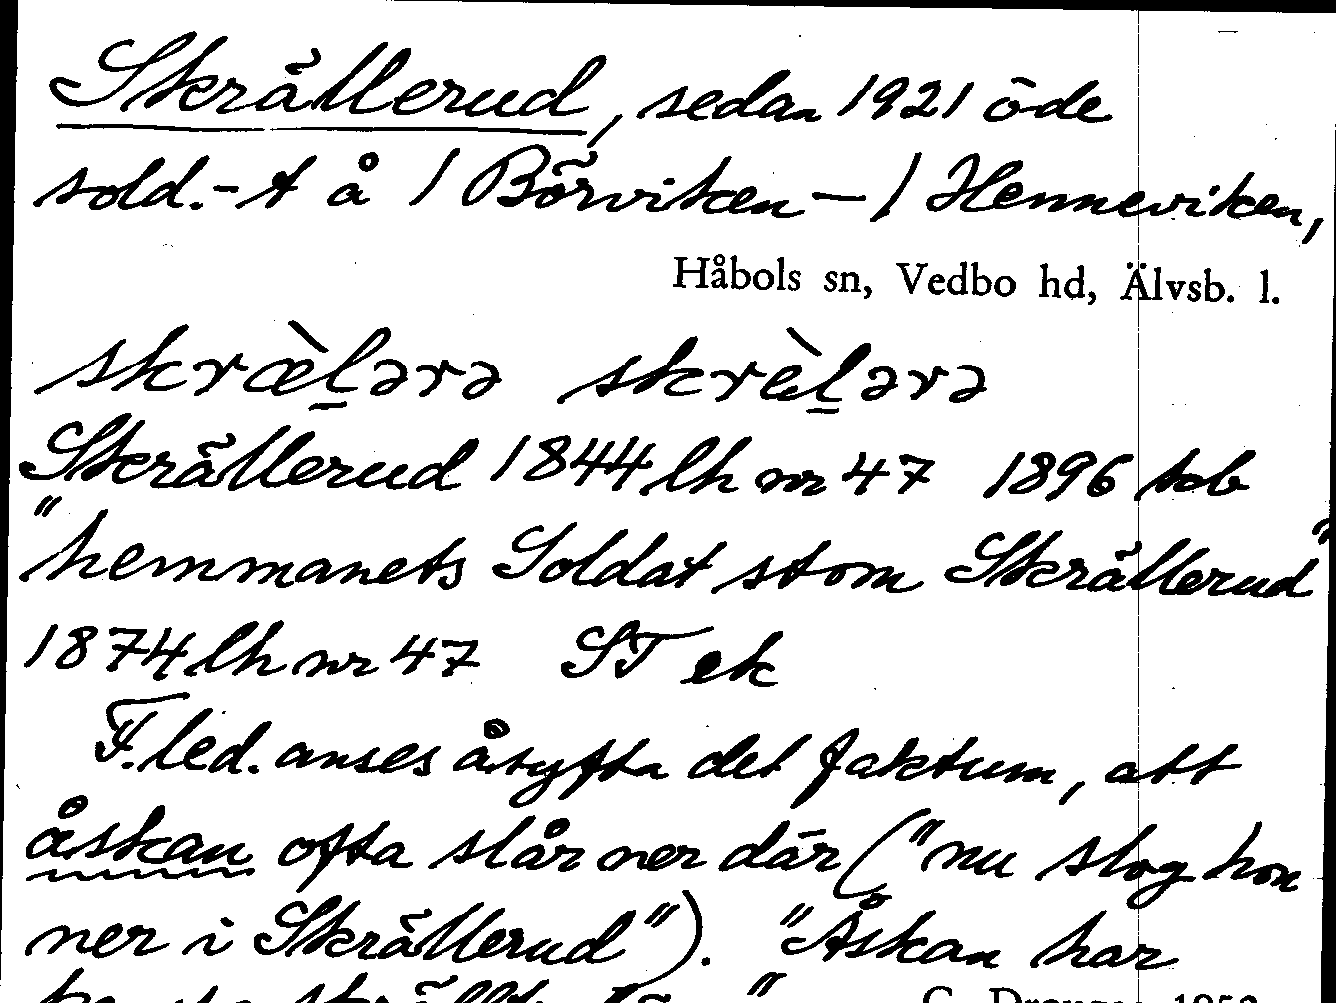 Skrällerud, sedan 1921 öde
sold.-t å / Börviken – / Henneviken,
Håbols sn, Vedbo hd, Älvsb. l.
skræ̀l̠ərə skrèl̠ərə
Skrällerud 1844 lh nr 47 1896 tob
"hemmanets Soldat stom Skrällerud"
1874 lh nr 47 ST ek
F.led. anses åsyfta det faktum, att
åskan ofta slår ner där ("nu slog hon
ner i Skrällerud"). "Åskan har